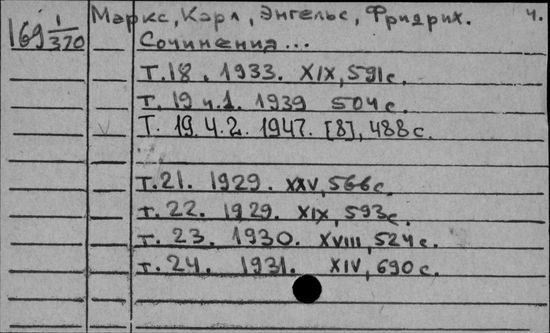 Маркс, Карл, Энгельс, Фридрих. ч.
169 1/370
Сочинения...
Т.18. 1933. XIX, 591с.
Т. 19 ч.1. 1939 504с.
Т. 19. ч.2. 1947. [8], 488с.
т.21. 1929. XXV, 566с.
т.22. 1929. XIX, 593с.
т. 23. 1930. XVIII, 524с.
т.24. 1931. XIV, 690с.